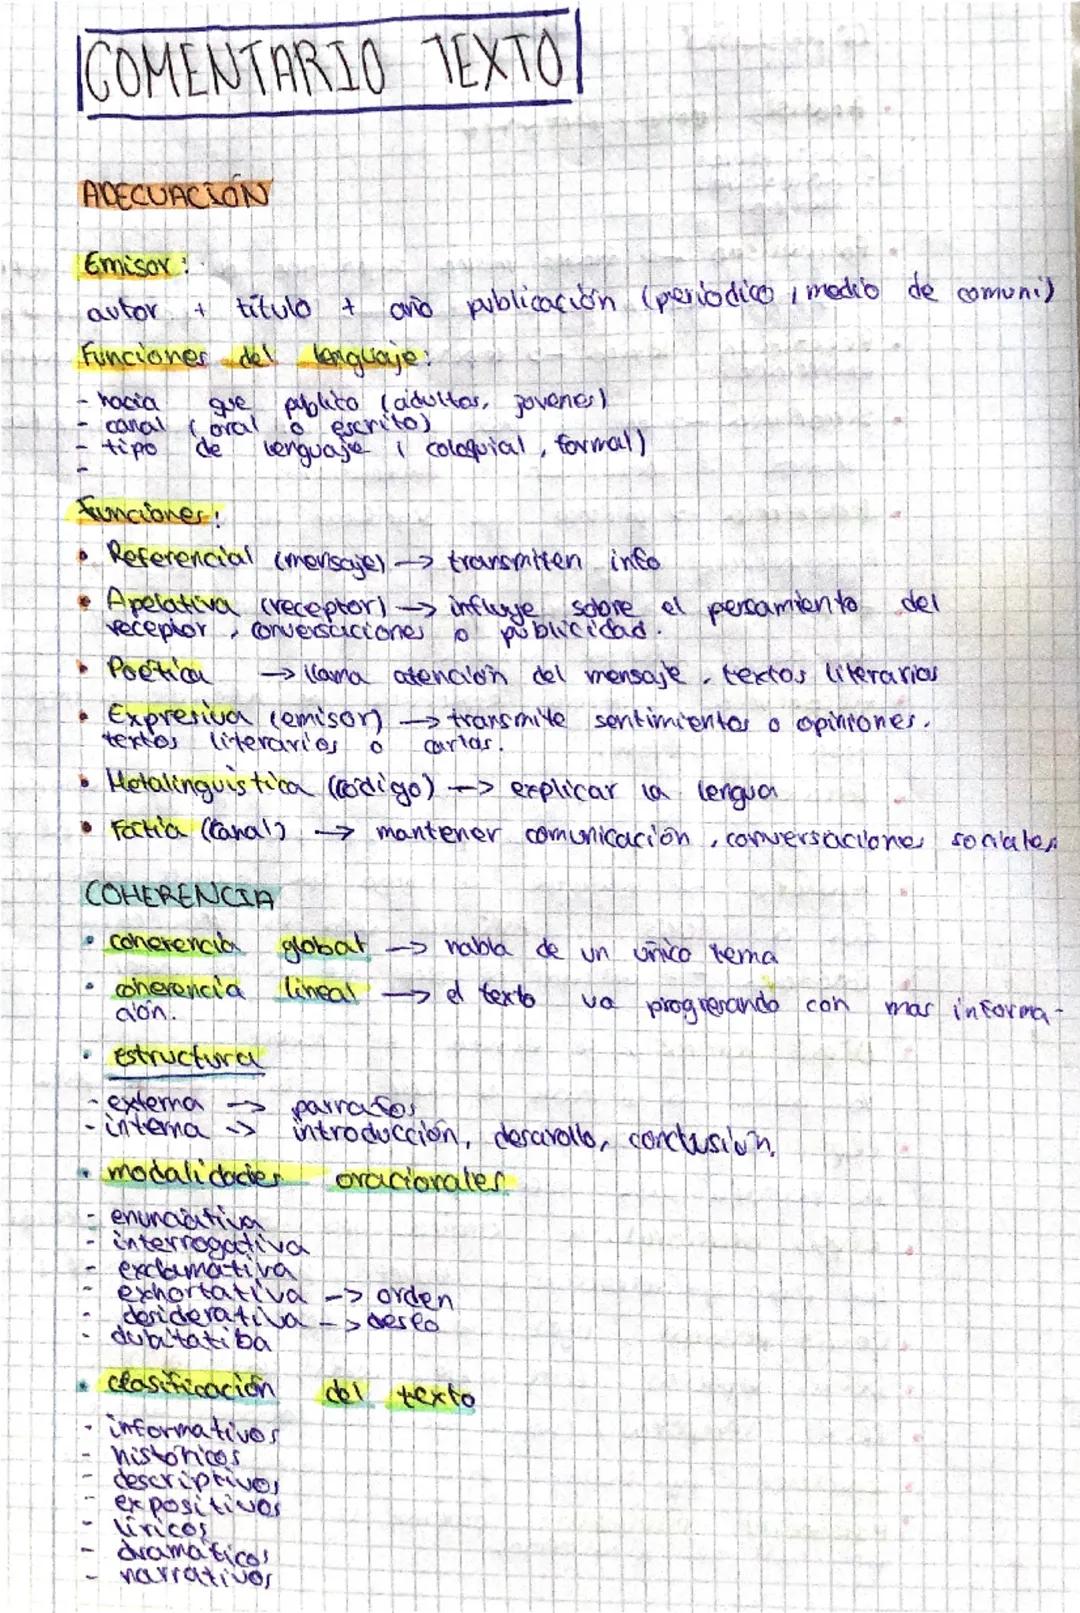 COMENTARIO TEXTO
ADECUACIÓN
Emisor:
autor + título + año publicación (periódico, medio de comuni)
Funciones del lenguaje:
- hacia que público (adultos, jovenes)
- canal (oral o escrito)
- tipo de lenguaje (coloquial, formal)
-
Funciones:
• Referencial (mensaje) → transmiten info
• Apelativa (receptor) → influye sobre el pensamiento del
receptor, conversaciones o publicidad.
• Poética → llama atención del mensaje, textos literarios
• Expresiva (emisor) → transmite sentimientos o opiniones.
textos literarios o cartas.
• Metalinguistica (código) → explicar la lengua
• Factica (canal) → mantener comunicación, conversaciones sociales
COHERENCIA
• coherencia global → habla de un único tema
• coherencia lineal → el texto va progresando con mas informa-
ción.
• estructura
- externa → parrafos
- interna → introducción, desarollo, conclusión.
• modalidades oracionales
- enunciativa
- interrogativa
- exclamativa
- exhortativa → orden
- desiderativa → deseo
- dubitatiba
• clasificación del texto
- informativos
- históricos
- descriptivos
- expositivos
- líricos
- dramáticos
- narrativos